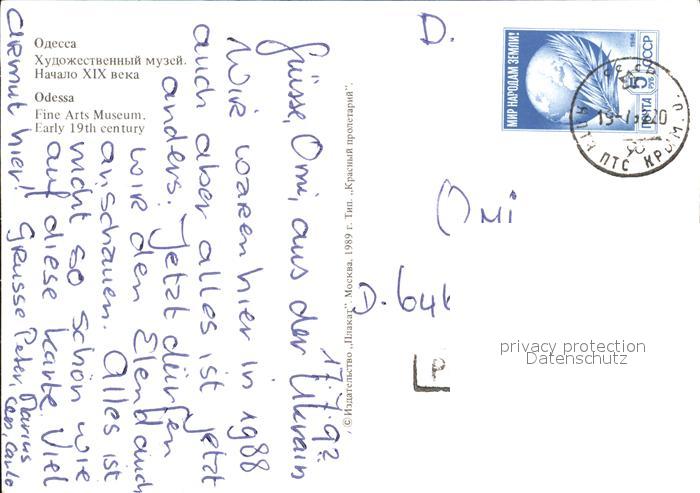 Одесса
Художественный музей.
Начало XIX века
Odessa
Fine Arts Museum.
Early 19th century
17.7.92
Grüsse, Omi, aus der Ukrain
Wir waren hier in 1988
auch aber alles ist jetzt
anders. Jetzt dürfen
wir den Elend auch
anschauen. Alles ist
nicht so schön wie
auf diese Karte. Viel
armut hier! Grusse Peter, Darius
Carlo
© Издательство „Плакат". Москва. 1989 г. Тип. „Красный пролетарий".
D.
МИР НАРОДАМ ЗЕМЛИ!
1984
5 РУБ
ПОЧТА СССР
ЯЛТА ПТС КРЫМ. О.
Omi
D. 646
P
privacy protection
Datenschutz